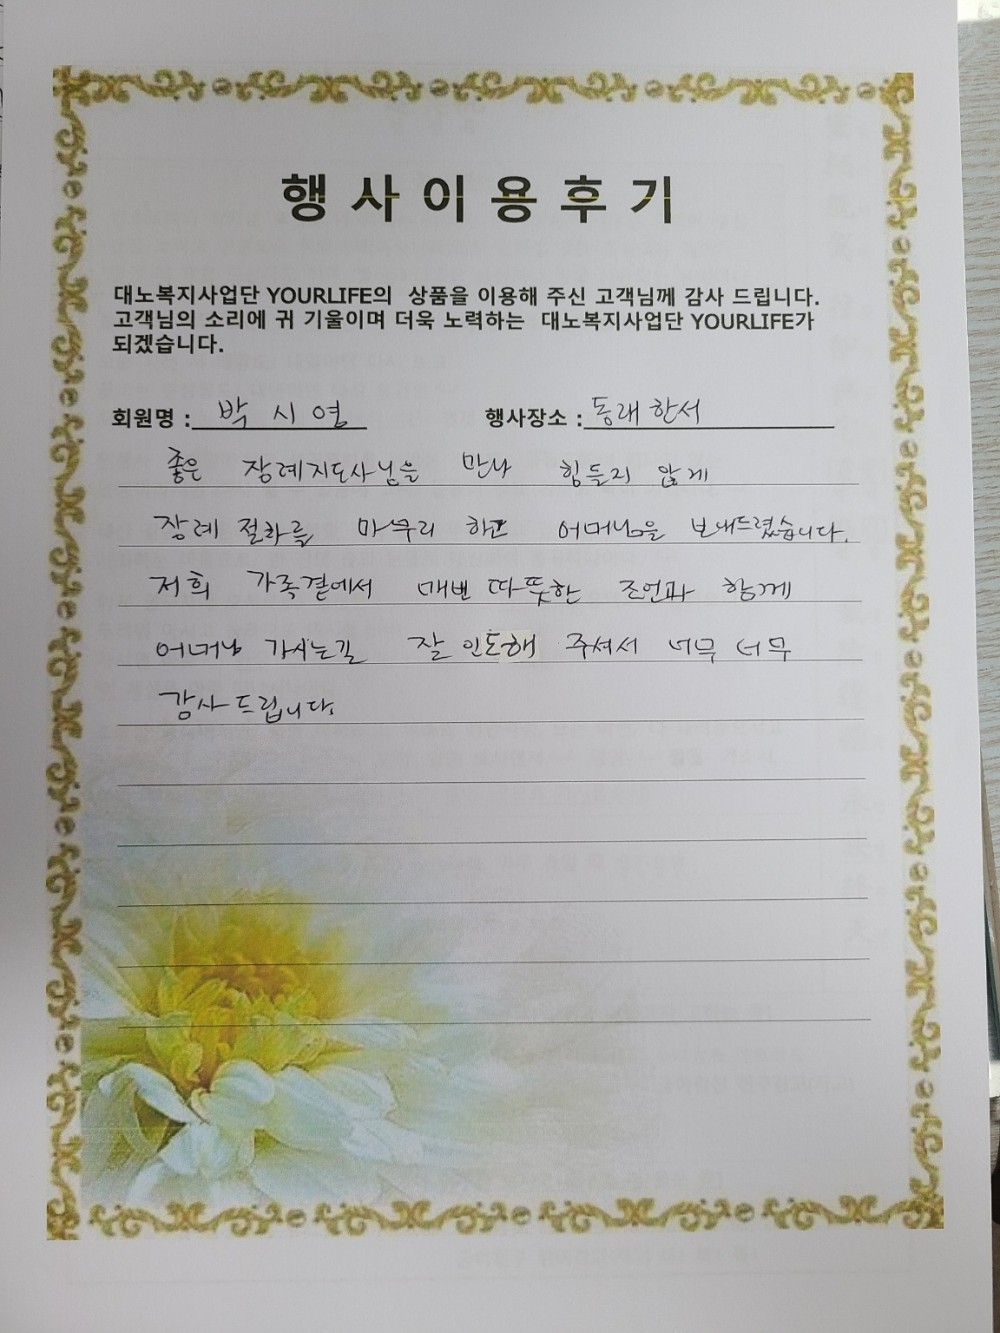 행사이용후기
대노복지사업단 YOURLIFE의 상품을 이용해 주신 고객님께 감사 드립니다.
고객님의 소리에 귀 기울이며 더욱 노력하는 대노복지사업단 YOURLIFE가
되겠습니다.
회원명 : 박 시 영 행사장소 : 동래 한서
좋은 장례지도사님을 만나 힘들지 않게
장례 절차를 마무리 하고 어머님을 보내드렸습니다.
저희 가족곁에서 매번 따뜻한 조언과 함께
어머님 가시는길 잘 인도해 주셔서 너무 너무
감사드립니다.